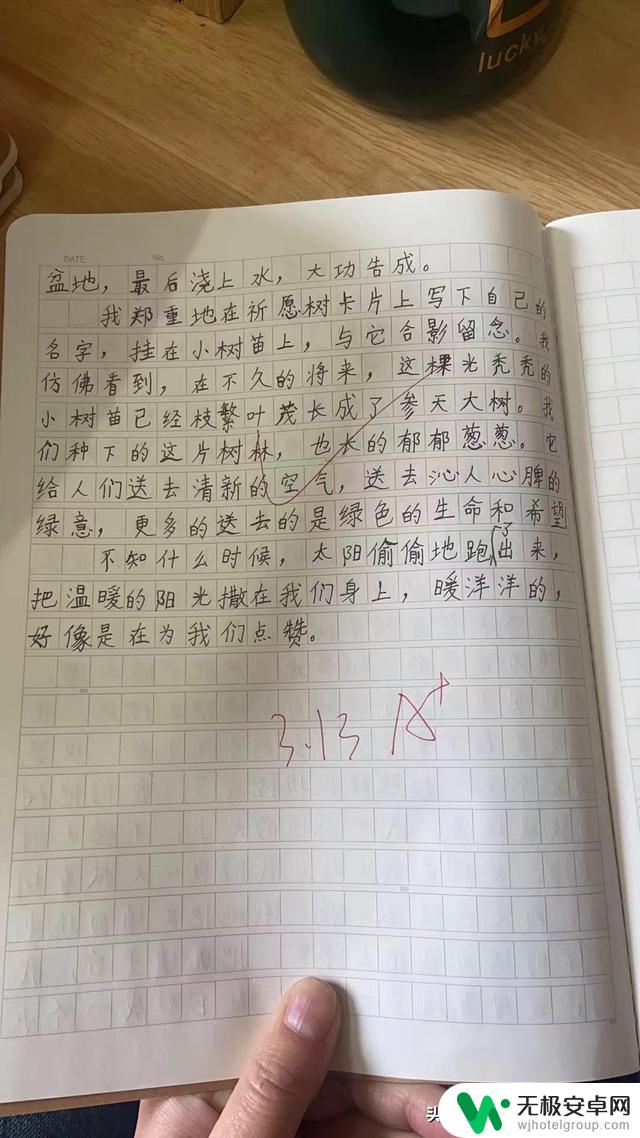 lucky
DATE: No.
盆地，最后浇上水，大功告成。
我郑重地在祈愿树卡片上写下自己的
名字，挂在小树苗上，与它合影留念。我
仿佛看到，在不久的将来，这棵光秃秃的
小树苗已经枝繁叶茂长成了参天大树。我
们种下的这片树林，也长的郁郁葱葱。它
给人们送去清新的空气，送去沁人心脾的
绿意，更多的送去的是绿色的生命和希望
不知什么时候，太阳偷偷地跑了出来，
把温暖的阳光撒在我们身上，暖洋洋的，
好像是在为我们点赞。
3.13 A+
头
无极安卓网
wjhotelgroup.com